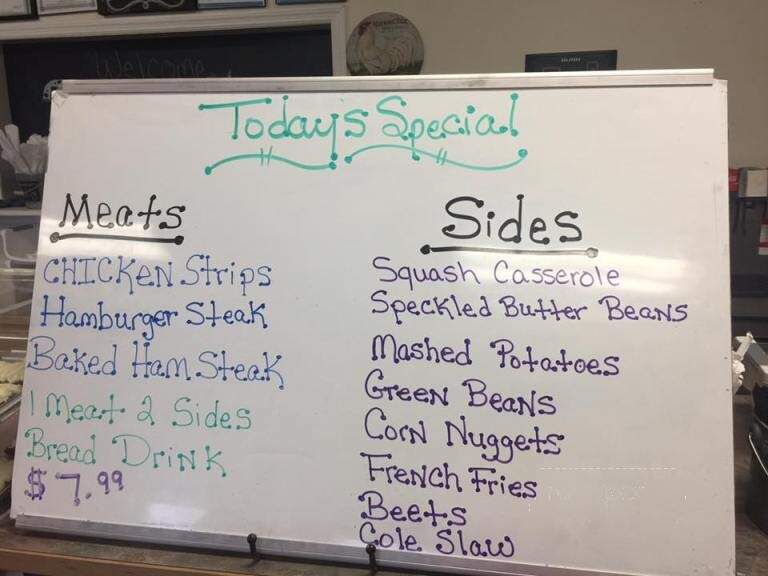 Welcome
Today's Special
Meats
CHICKEN Strips
Hamburger Steak
Baked Ham Steak
1 Meat 2 Sides
Bread Drink
$7.99
Sides
Squash Casserole
Speckled Butter Beans
Mashed Potatoes
Green Beans
Corn Nuggets
French Fries
Beets
Cole Slaw